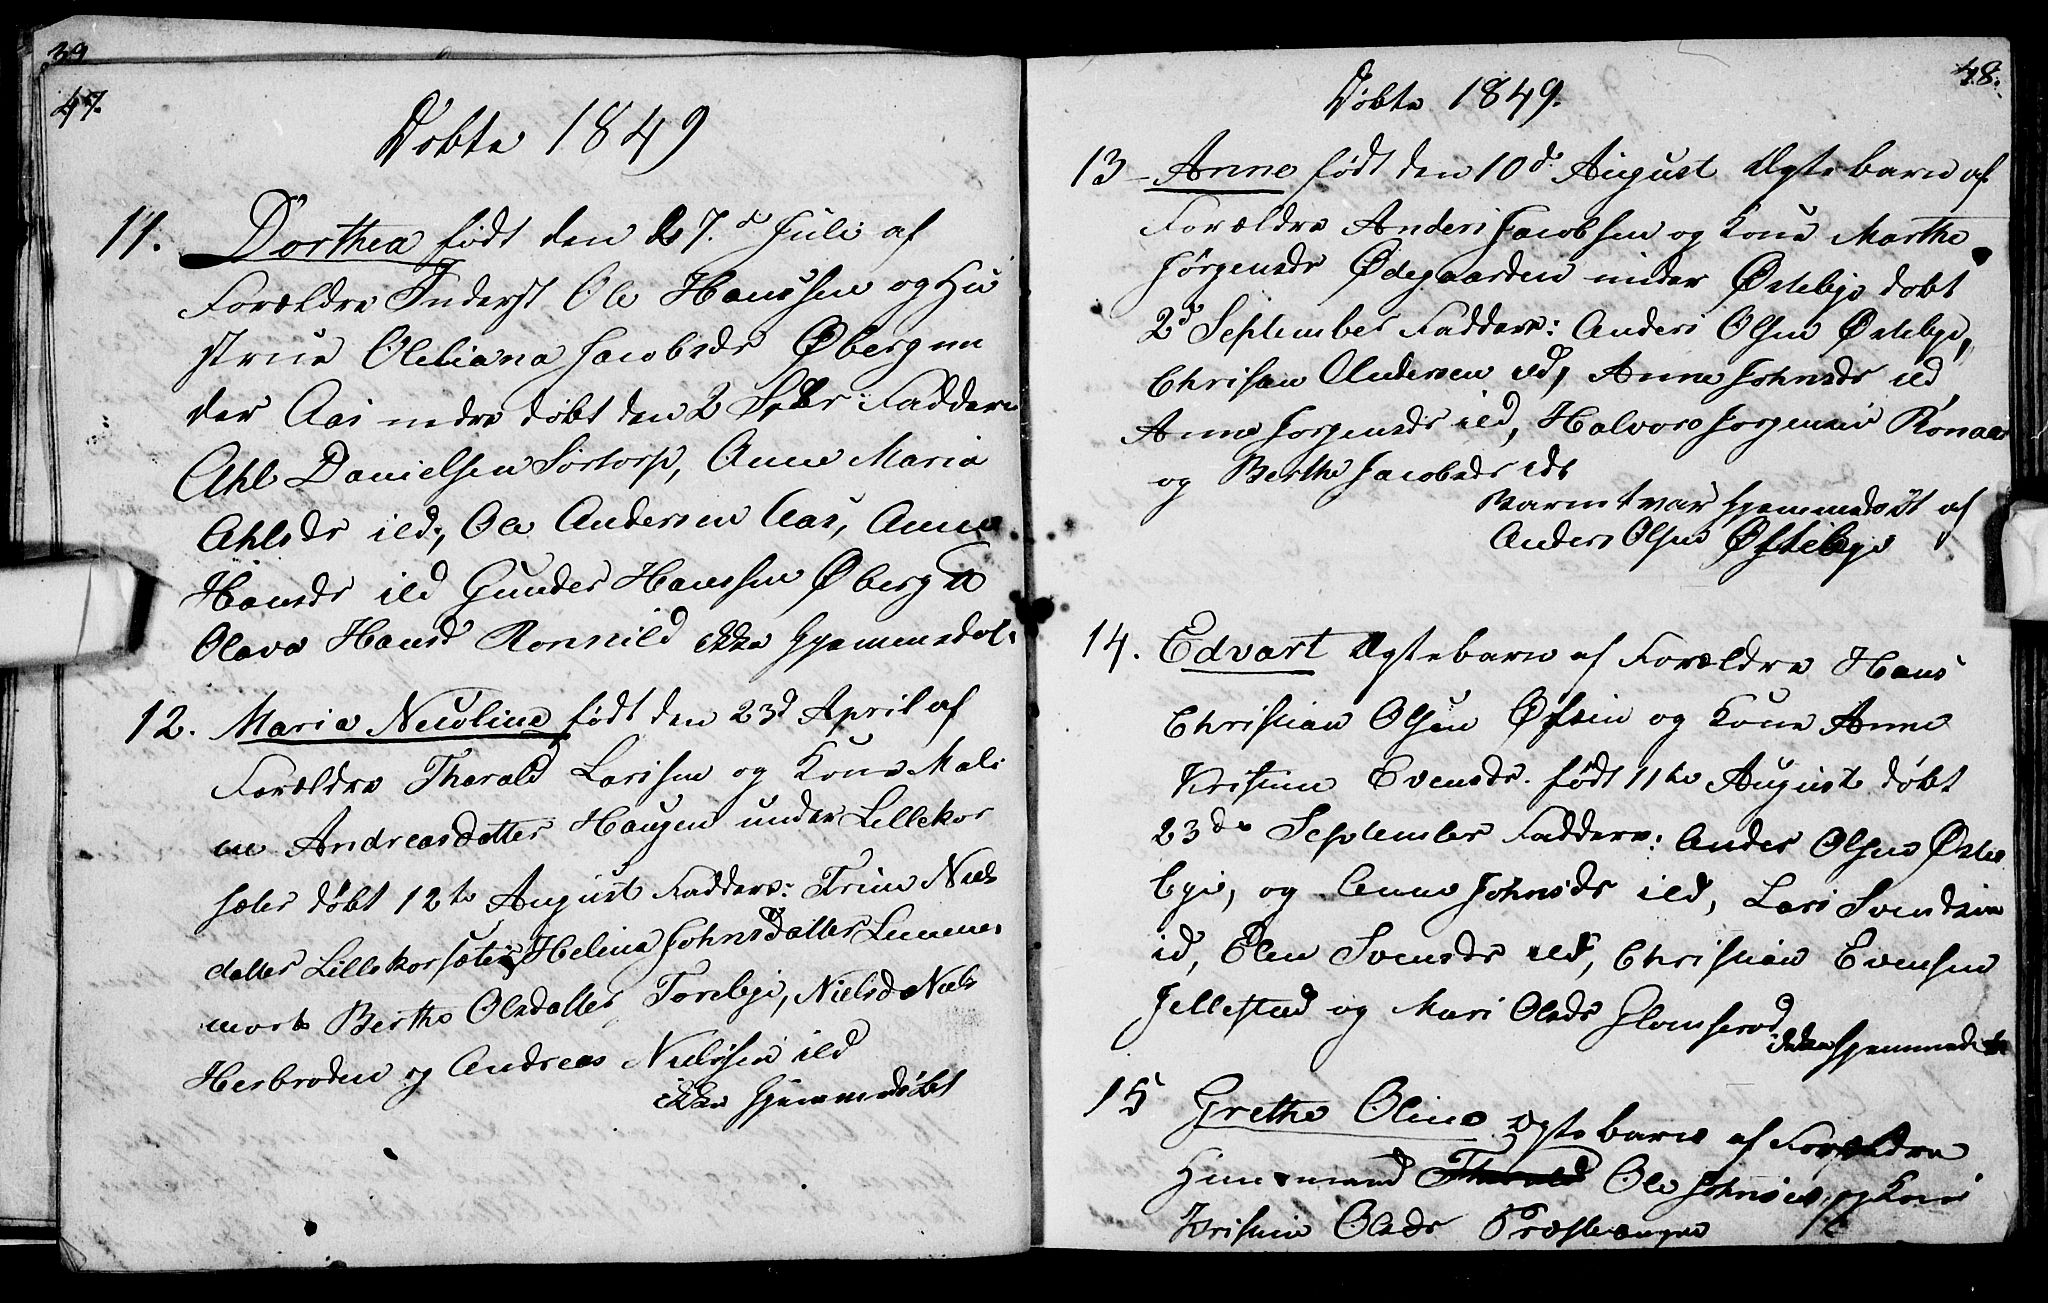 39
47.
Døbte 1849
11. Dorthea født den 7.d Juli af
Forældre Inderst Ole Hanssen og Hu
strue Oleliana Jacobsdr Øberg un
der Aas nedre døbt den 2 Spbr: Faddere
Ahl Danielsen Sørtorp, Anne Maria
Ahlsdr ild; Ole Andersen Aas, Anne
Hansdr ild Gunder Hanssen Øberg
Olava Hansd Ronnild ikke hjemmedøbt.
12. Maria Nicoline født den 23d April af
Forældre Tharald Larssen og Kone Mali
ne Andreasdatter Haugen under Lillekor
sæter døbt 12te August Faddere: Trine Niels
datter Lillekorsæter, Helina Johnsdatter Lemme
mark Berthe Olsdatter Torebye, Niels Niels
Herbroden og Andreas Nielssen ild
ikke hjemmedøbt
48.
Døbte 1849.
13 - Anne født den 10d. August Ægte barn af
Forældre Anders Jacobsen og Kone Marthe
Jørgensdr Ødegaarden under Østebye døbt
2d September Faddere: Anders Olsen Østebye,
Chrisian Andersen ild, Anne Johnsdr ild
Anne Jorgensdr ild, Halvor Jorgensen Rønaas
og Berthe Jacobsdr
Barnet var hjemmedøbt af
Anders Olsen Østebye
14. Edvart Ægtebarn af Forældre Hans
Christian Olsen Øfsien og Kone Anne
Kristine Evensdr. født 11te August døbt
23de September Faddere: Anders Olsen Øste
bye, og Anne Johnsdr ild, Lars Svendsen
id, Elen Svensdr ild, Christian Evensen
Jellestad og Mari Olsdr Glomserød
ikke hjemmedøbt
15 Grethe Oline Ægte barn af Forældre
Huusmand Ole Johnsen og Kone
Kristine Olsdr Præstevangen